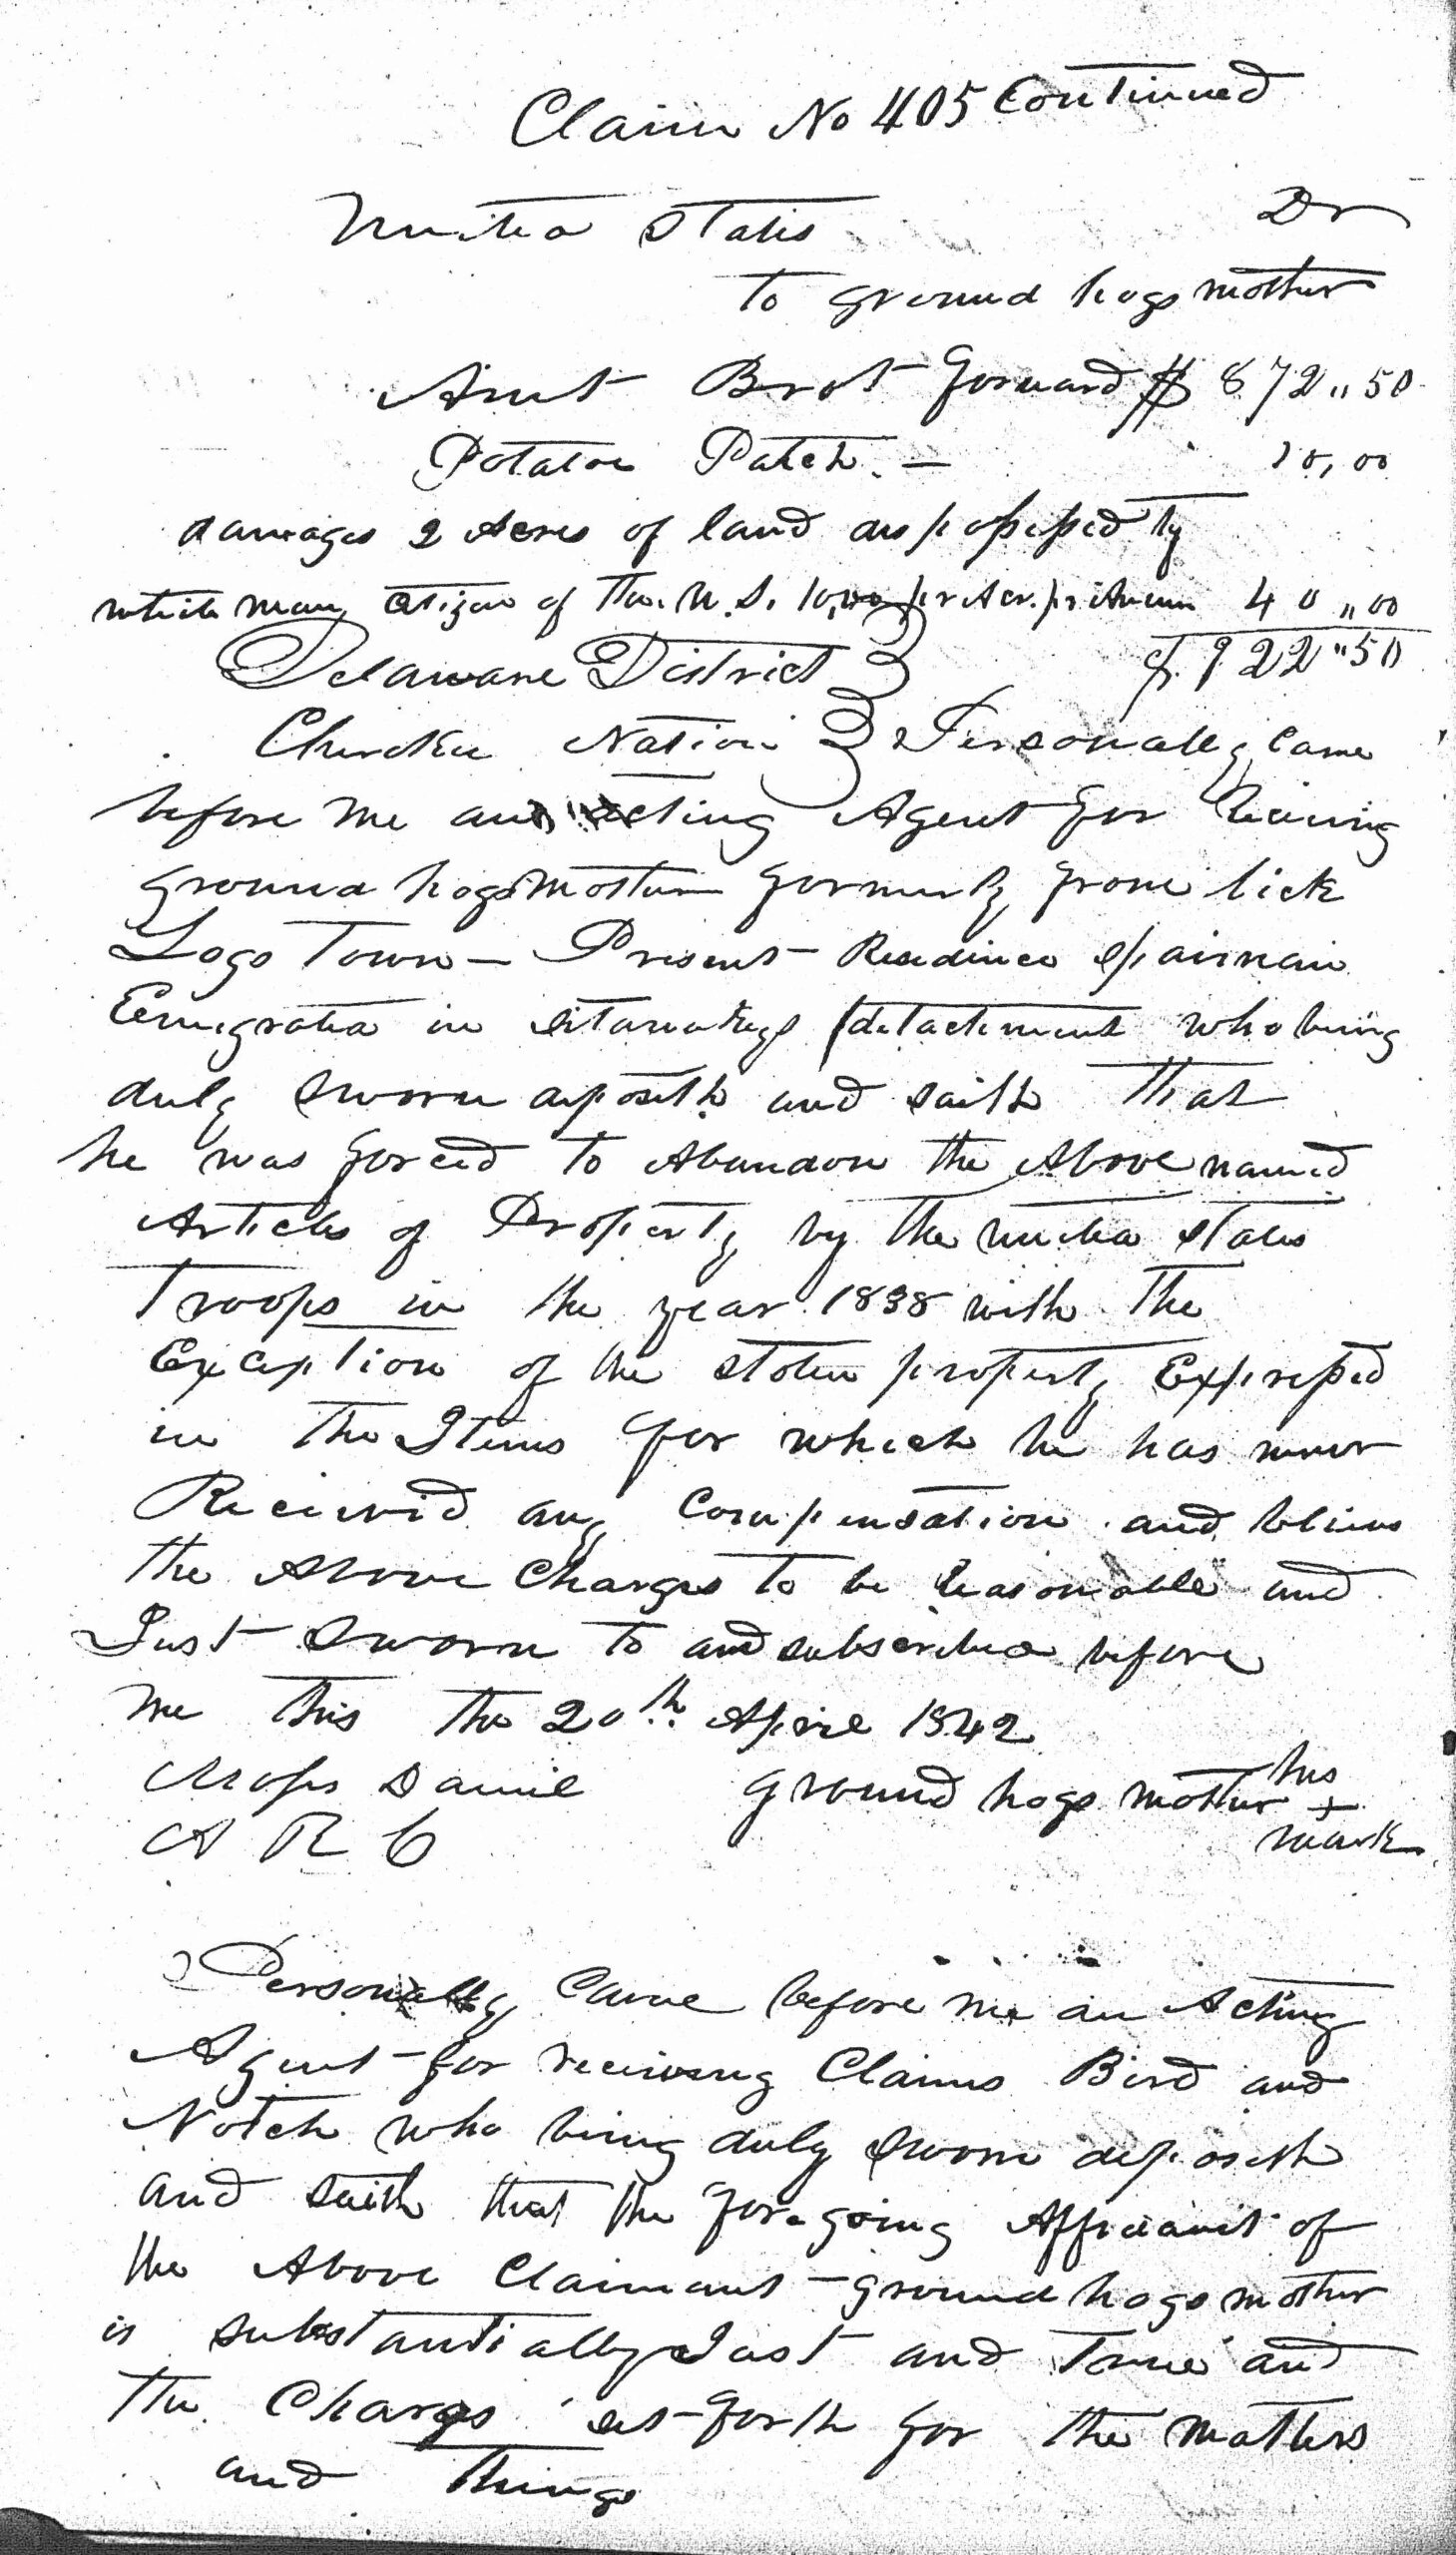 Claim No 405 Continued
United States Dr
To ground hogs mother
Amt Brot forward $ 872 " 50
Potatoe Patch — 10,00
damages 2 Acres of land dispossessed by
white man, citizen of The U. S. 10,00 pr Acr. pr Annum 40 " 00
Delaware District } $ 922 " 50
Cherokee Nation } Personally Came
before me an acting Agent for
ground hogs Mother formerly from lick
Logs Town — Present Residence
Emigrated in detachment who being
duly sworn deposeth and saith That
he was forced to Abandon the Above named
Articles of Property by the united States
Troops in the year 1838 with The
Exception of the stolen property Expressed
in The Items for which he has never
Received any Compensation and believes
the Above Charges To be Reasonable and
Just Sworn To and subscribed before
me This The 20th April 1842
Moses Daniel ground hogs mother his
A R C + mark
Personally Came before me an Acting
Agent for receiving Claims Bird and
Notch who being duly sworn deposeth
and saith that the foregoing Affidavit of
the Above Claimant ground hogs mother
is substantially Just and True and
The Charges set forth for the matters
and Things